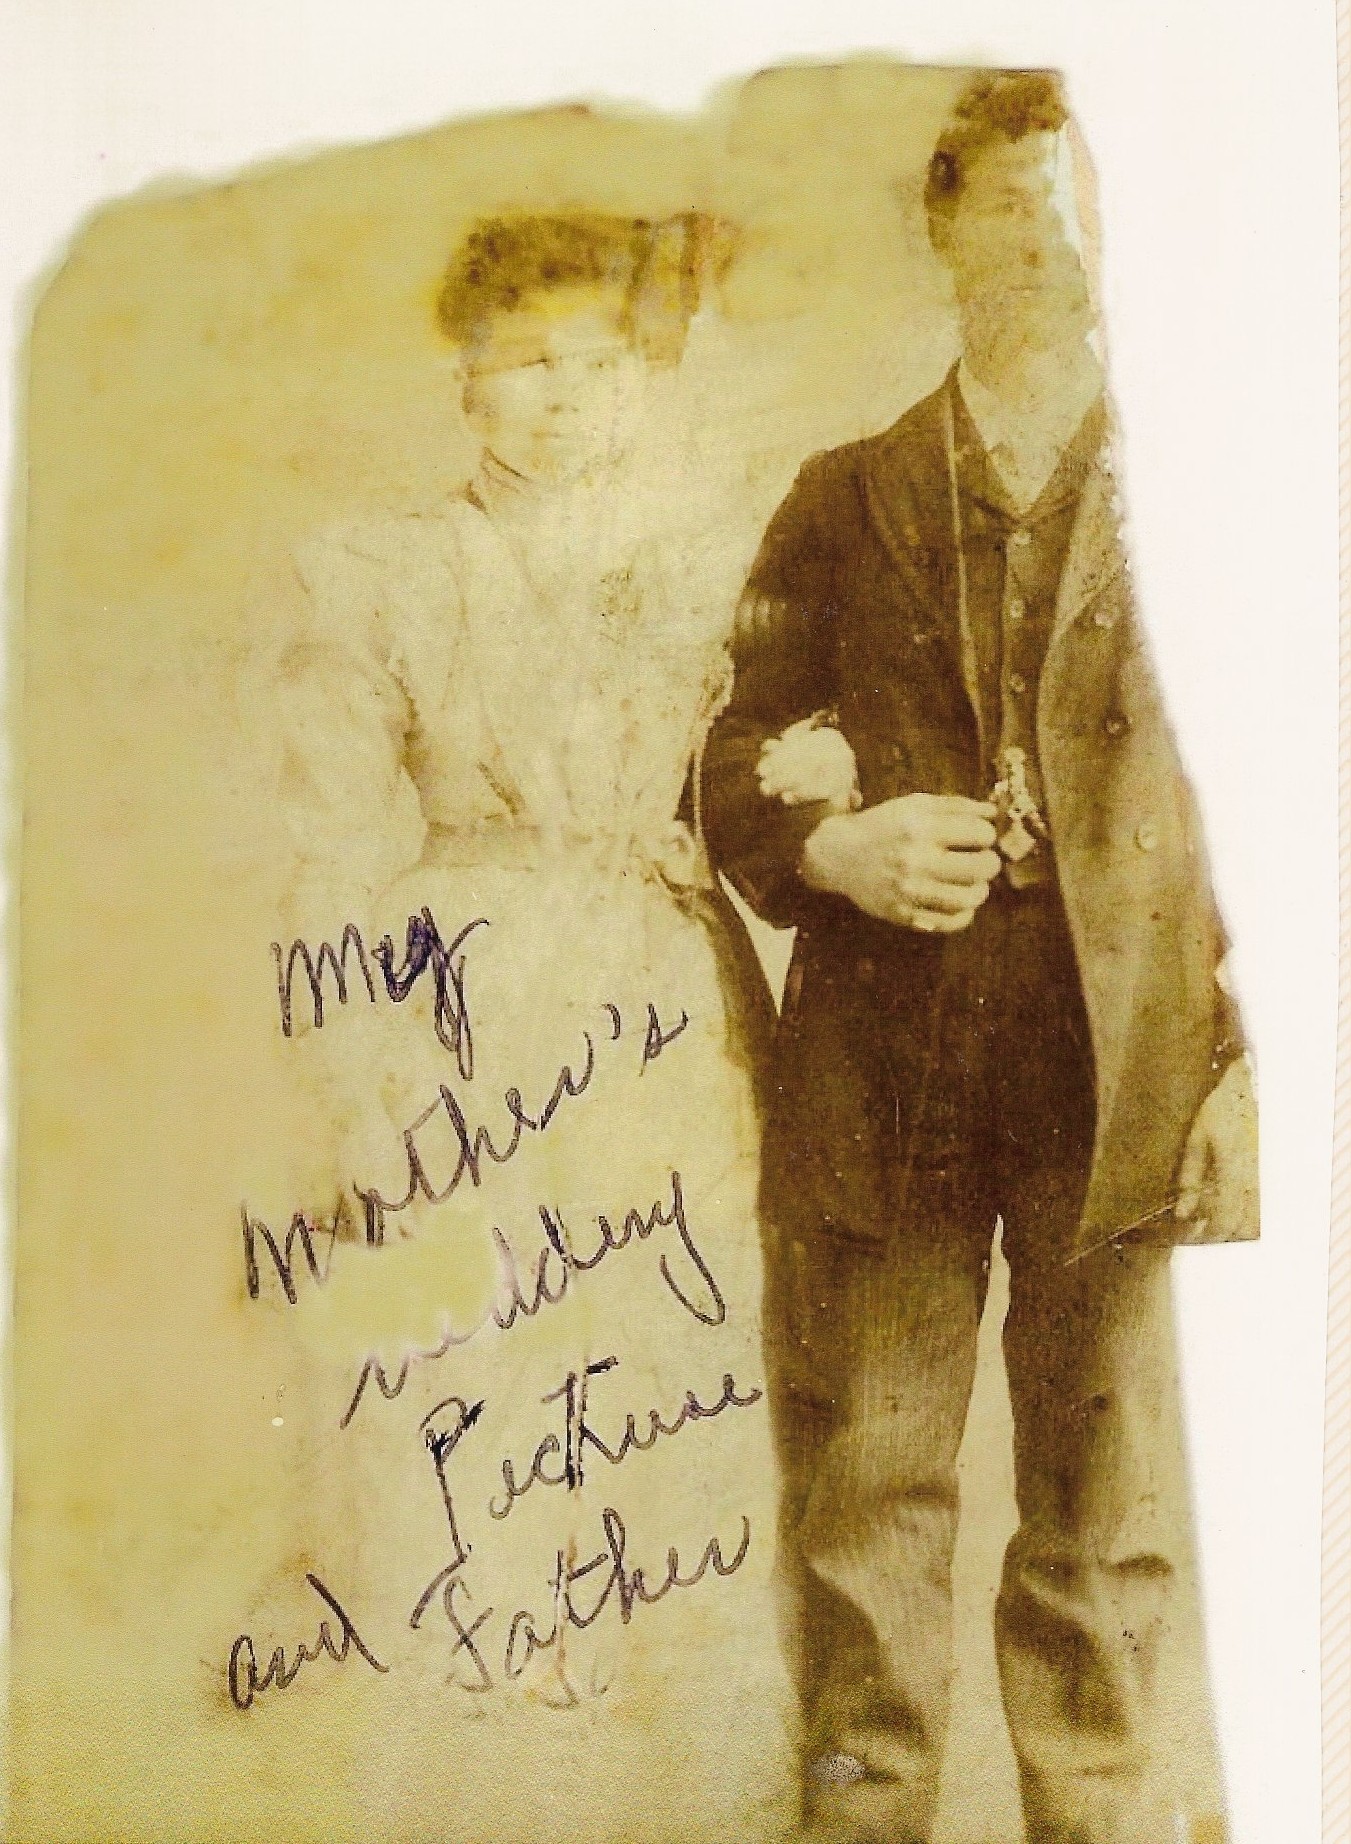 My
Mother's
wedding
Picture
and Father